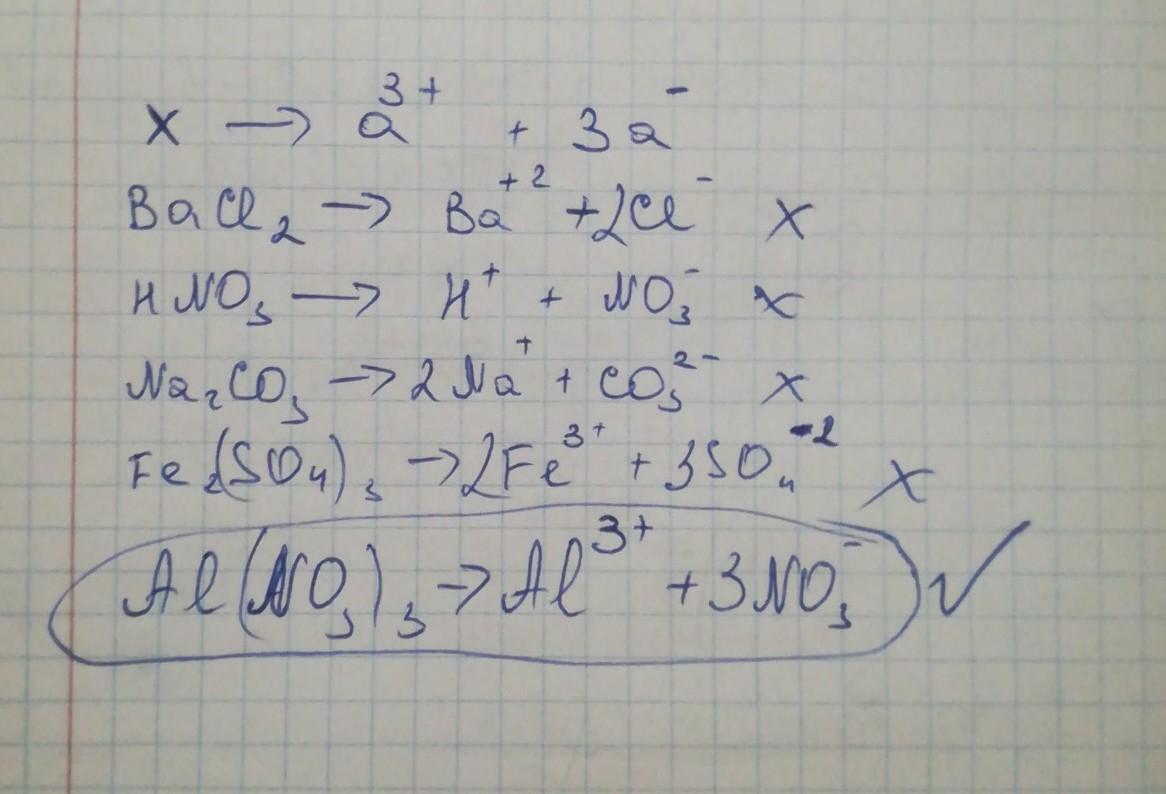 X → a³⁺ + 3a⁻
BaCl₂ → Ba⁺² + 2Cl⁻ X
HNO₃ → H⁺ + NO₃⁻ X
Na₂CO₃ → 2Na⁺ + CO₃²⁻ X
Fe₂(SO₄)₃ → 2Fe³⁺ + 3SO₄⁻² X
Al(NO₃)₃ → Al³⁺ + 3NO₃⁻ ✓